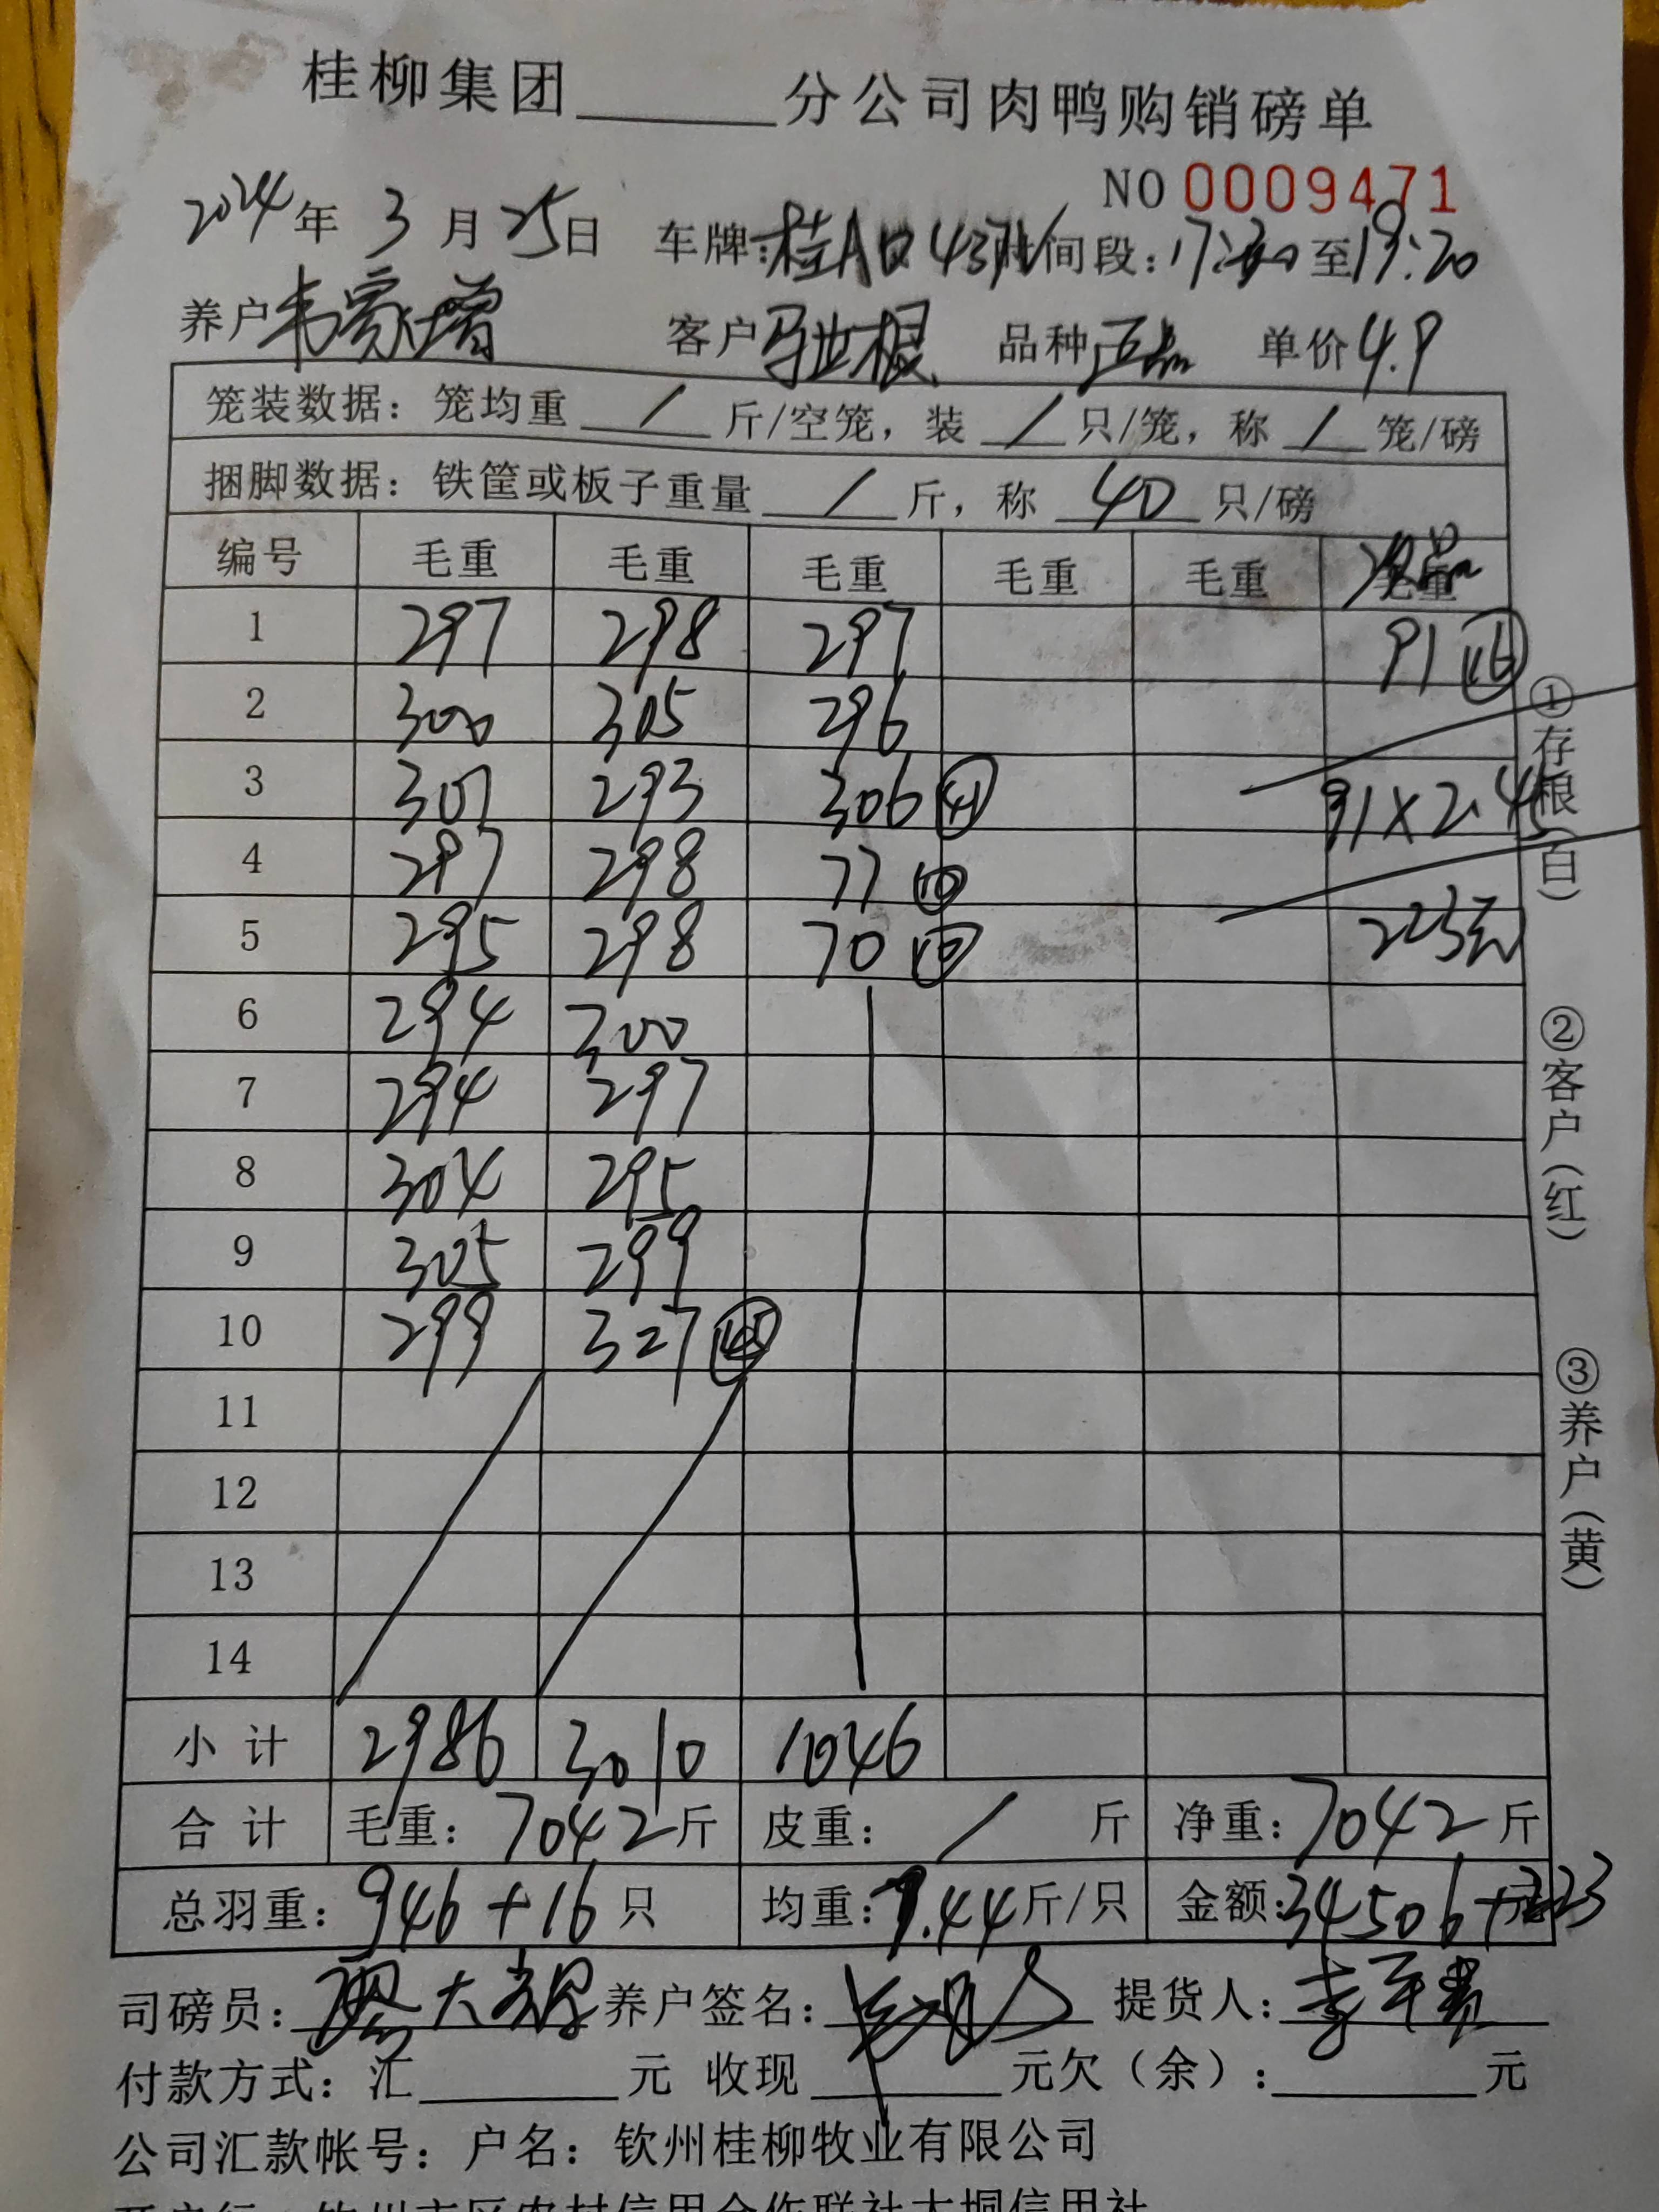 桂柳集团______分公司肉鸭购销磅单
NO 0009471
2024年 3月25日 车牌:桂A 时间段:17:30至19:20
养户韦家增 客户马业根 品种正品 单价4.9
笼装数据: 笼均重 / 斤/空笼, 装 / 只/笼, 称 / 笼/磅
捆脚数据: 铁筐或板子重量 / 斤, 称 40 只/磅
编号 毛重 毛重 毛重 毛重 毛重 毛重
1 297 298 297 91 16
2 300 305 296
3 301 293 306 41 91×2.45
4 297 298 77 10
5 295 298 70 10 223元
6 294 300
7 294 297
8 304 295
9 305 299
10 299 327 45
11
12
13
14
小计 2986 3010 1046
合计 毛重: 7042斤 皮重: / 斤 净重: 7042斤
总羽重: 946+16只 均重: 7.44斤/只 金额: 34506+223
司磅员: 养户签名: 提货人:
付款方式: 汇______元 收现______元欠(余):______元
公司汇款帐号: 户名: 钦州桂柳牧业有限公司
①存根(白)
②客户(红)
③养户(黄)